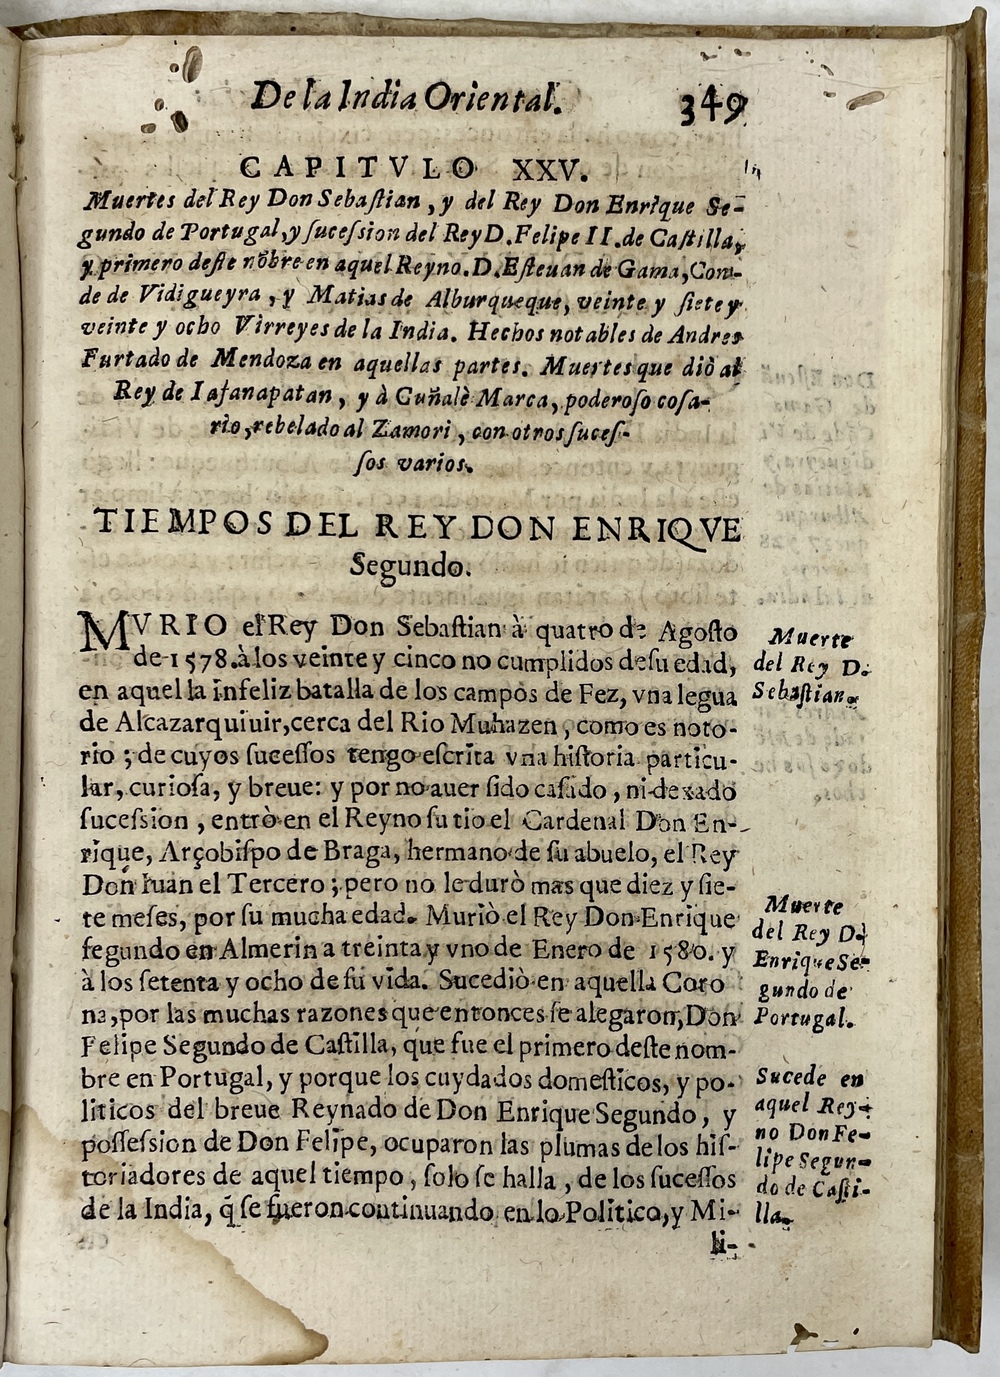 De la India Oriental. 349
CAPITVLO XXV.
Muertes del Rey Don Sebaſtian, y del Rey Don Enrique Se-
gundo de Portugal, y ſuceſsion del Rey D. Felipe II. de Caſtilla,
y primero deſte nõbre en aquel Reyno. D. Eſteuan de Gama, Con-
de de Vidigueyra, y Matias de Alburqueque, veinte y ſiete y
veinte y ocho Virreyes de la India. Hechos notables de Andres
Furtado de Mendoza en aquellas partes. Muertes que diò al
Rey de Iafanapatan, y à Cuñalè Marca, poderoſo coſa-
rio, rebelado al Zamori, con otros ſuceſ-
ſos varios.
TIEMPOS DEL REY DON ENRIQVE
Segundo.
MVRIO el Rey Don Sebaſtian à quatro de Agoſto
de 1578. à los veinte y cinco no cumplidos de ſu edad,
en aquella infeliz batalla de los campos de Fez, vna legua
de Alcazarquiuir, cerca del Rio Muhazen, como es noto-
rio; de cuyos ſuceſſos tengo eſcrita vna hiſtoria particu-
lar, curioſa, y breue: y por no auer ſido caſado, ni dexado
ſuceſsion, entrò en el Reyno ſu tio el Cardenal Don En-
rique, Arçobiſpo de Braga, hermano de ſu abuelo, el Rey
Don Iuan el Tercero; pero no le durò mas que diez y ſie-
te meſes, por ſu mucha edad. Muriò el Rey Don Enrique
ſegundo en Almerin a treinta y vno de Enero de 1580. y
à los ſetenta y ocho de ſu vida. Sucediò en aquella Coro
na, por las muchas razones que entonces ſe alegaron, Don
Felipe Segundo de Caſtilla, que fue el primero deſte nom-
bre en Portugal, y porque los cuydados domeſticos, y po-
liticos del breue Reynado de Don Enrique Segundo, y
poſſeſsion de Don Felipe, ocuparon las plumas de los hiſ-
toriadores de aquel tiempo, ſolo ſe halla, de los ſuceſſos
de la India, q̃ ſe fueron continuando en lo Politico, y Mi-
li-
Muerte
del Rey D.
Sebaſtian.
Muerte
del Rey D.
Enrique Se-
gundo de
Portugal.
Sucede en
aquel Rey-
no Don Fe-
lipe Segun-
do de Caſti-
lla.